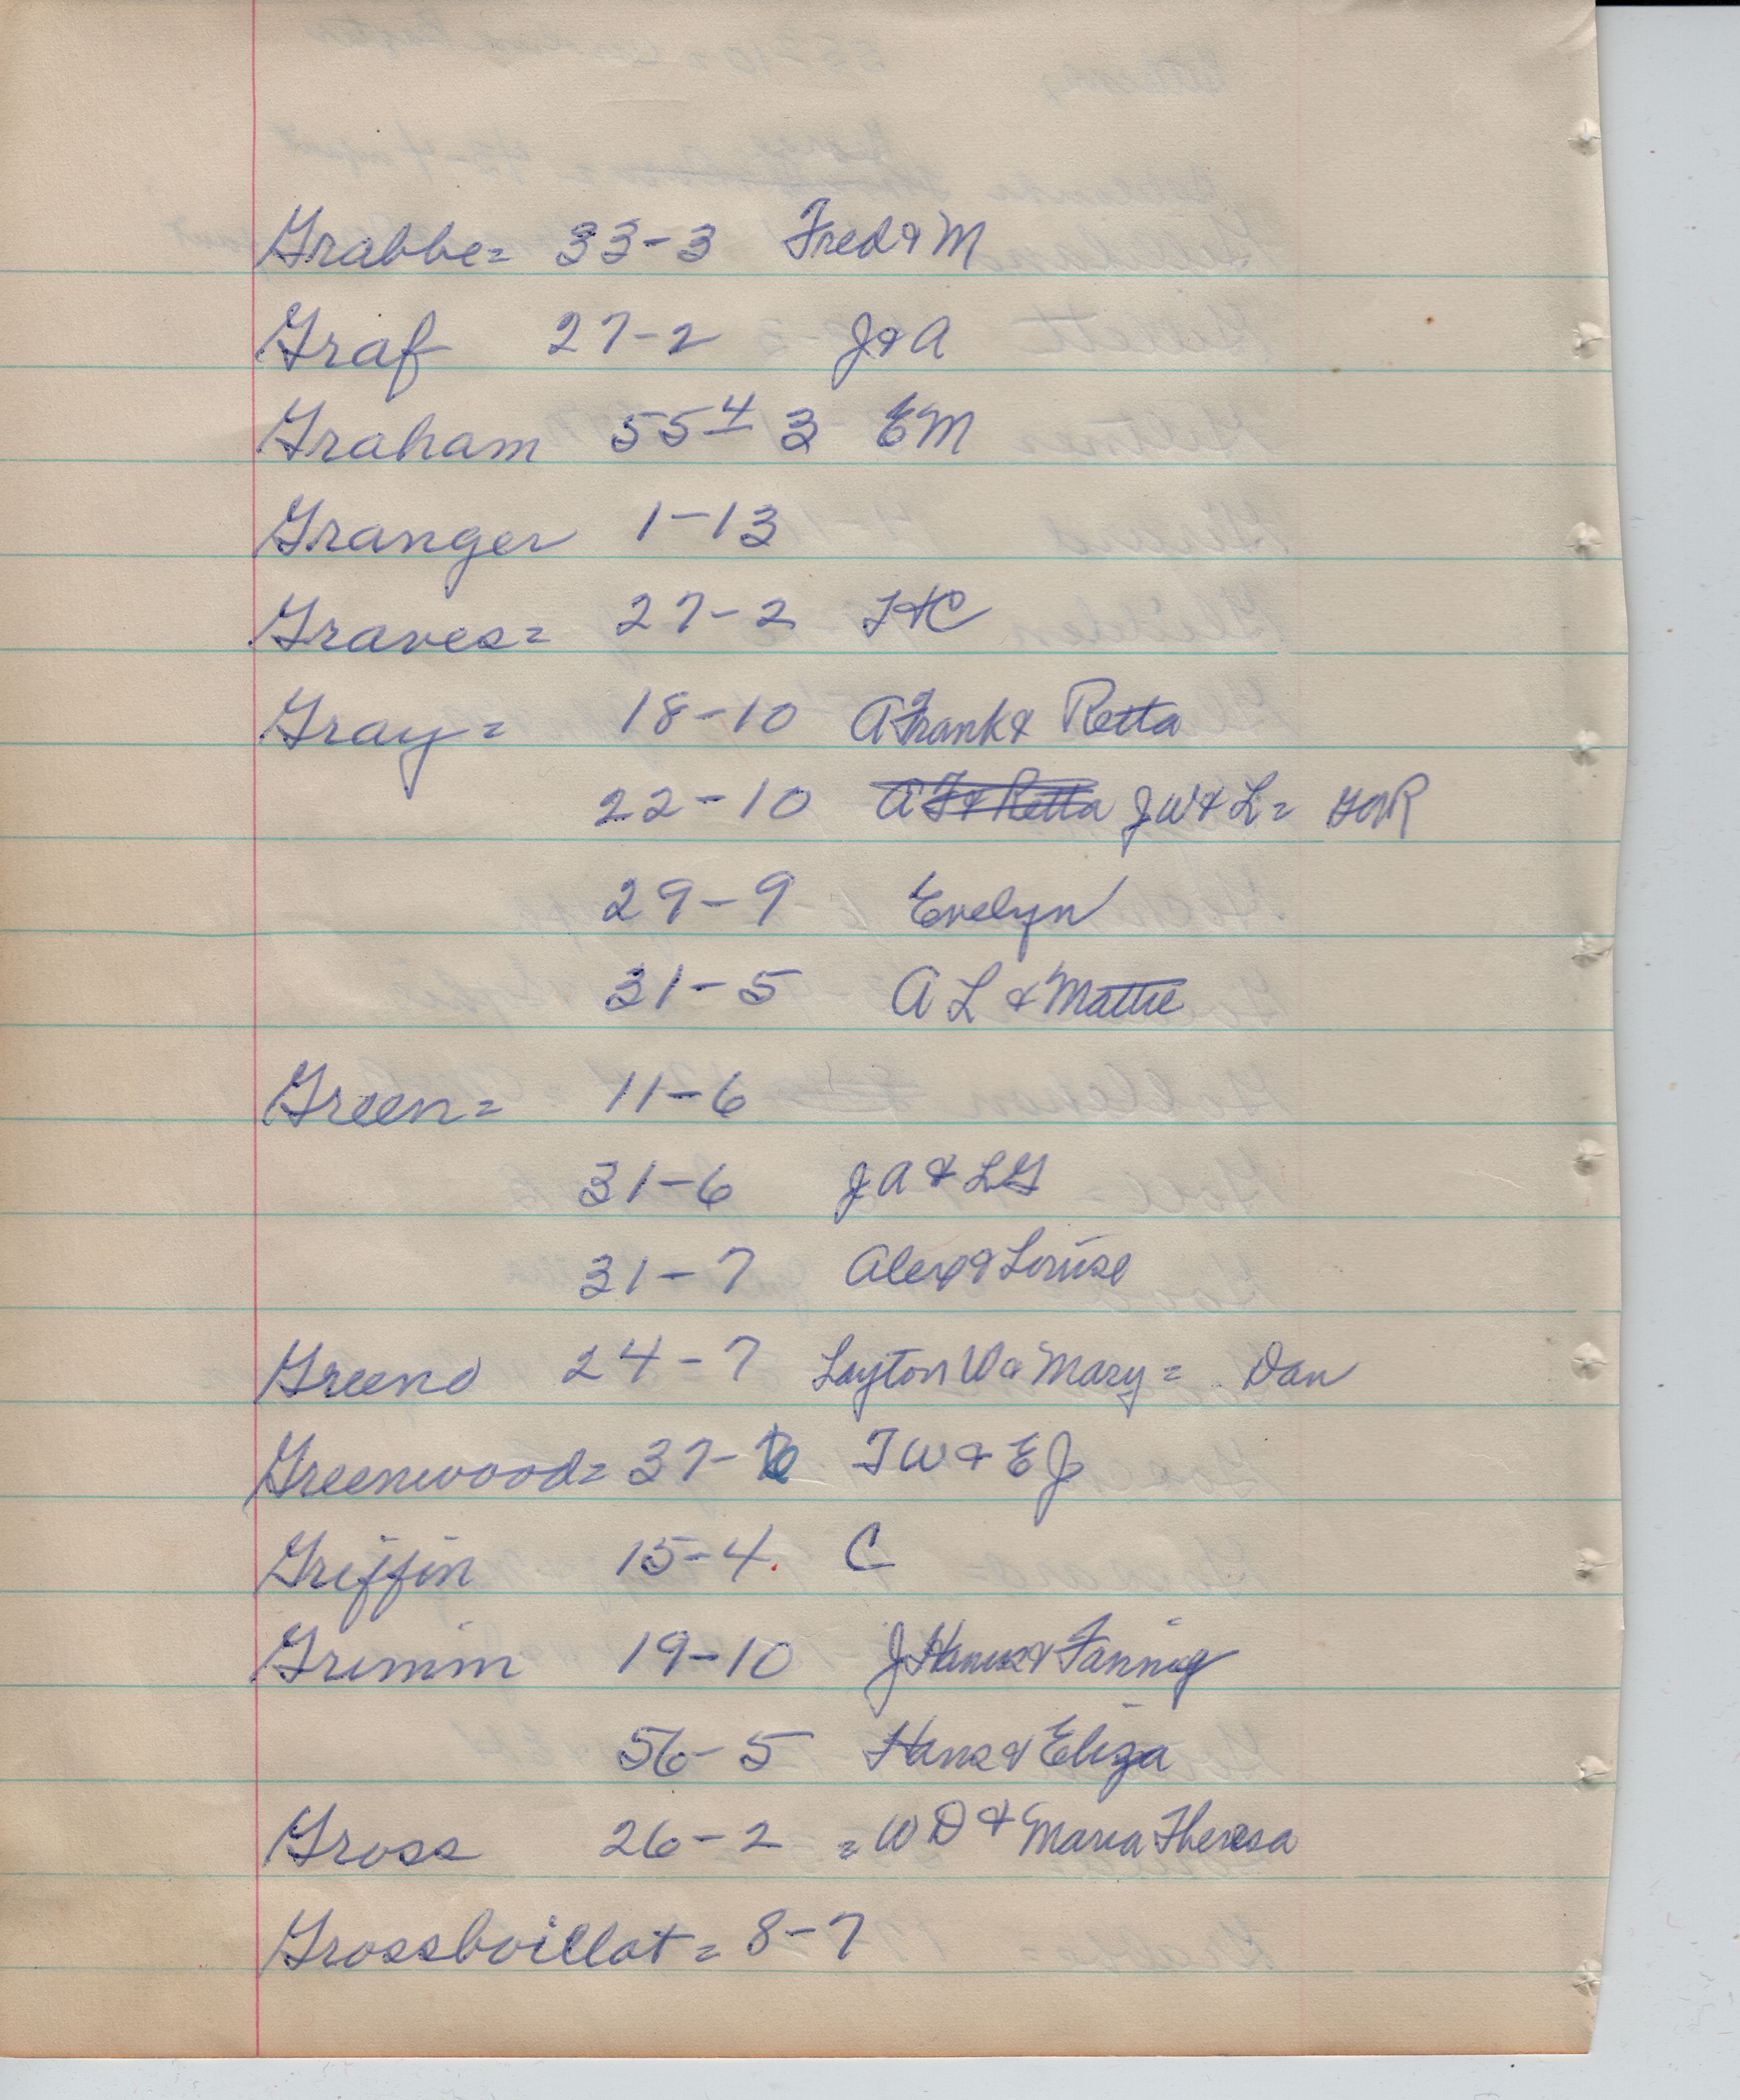 Grabbe= 33-3 Fred & M
Graf 27-2 J & A
Graham 55-4 3 EM
Granger 1-13
Graves= 27-2
Gray= 18-10 A Frank & Retta
22-10 A F & Retta J W & L=
29-9 Evelyn
31-5 A L & Mattie
Green= 11-6
31-6 J A & L G
31-7 Alex & Louise
Greeno 24-7 Layton W & Mary= Dan
Greenwood= 37- T W & E J
Griffin 15-4. C
Grimm 19-10 J & Fannie
56-5 Hans & Eliza
Gross 26-2 =W D & Maria Theresa
Grossboillot= 8-7